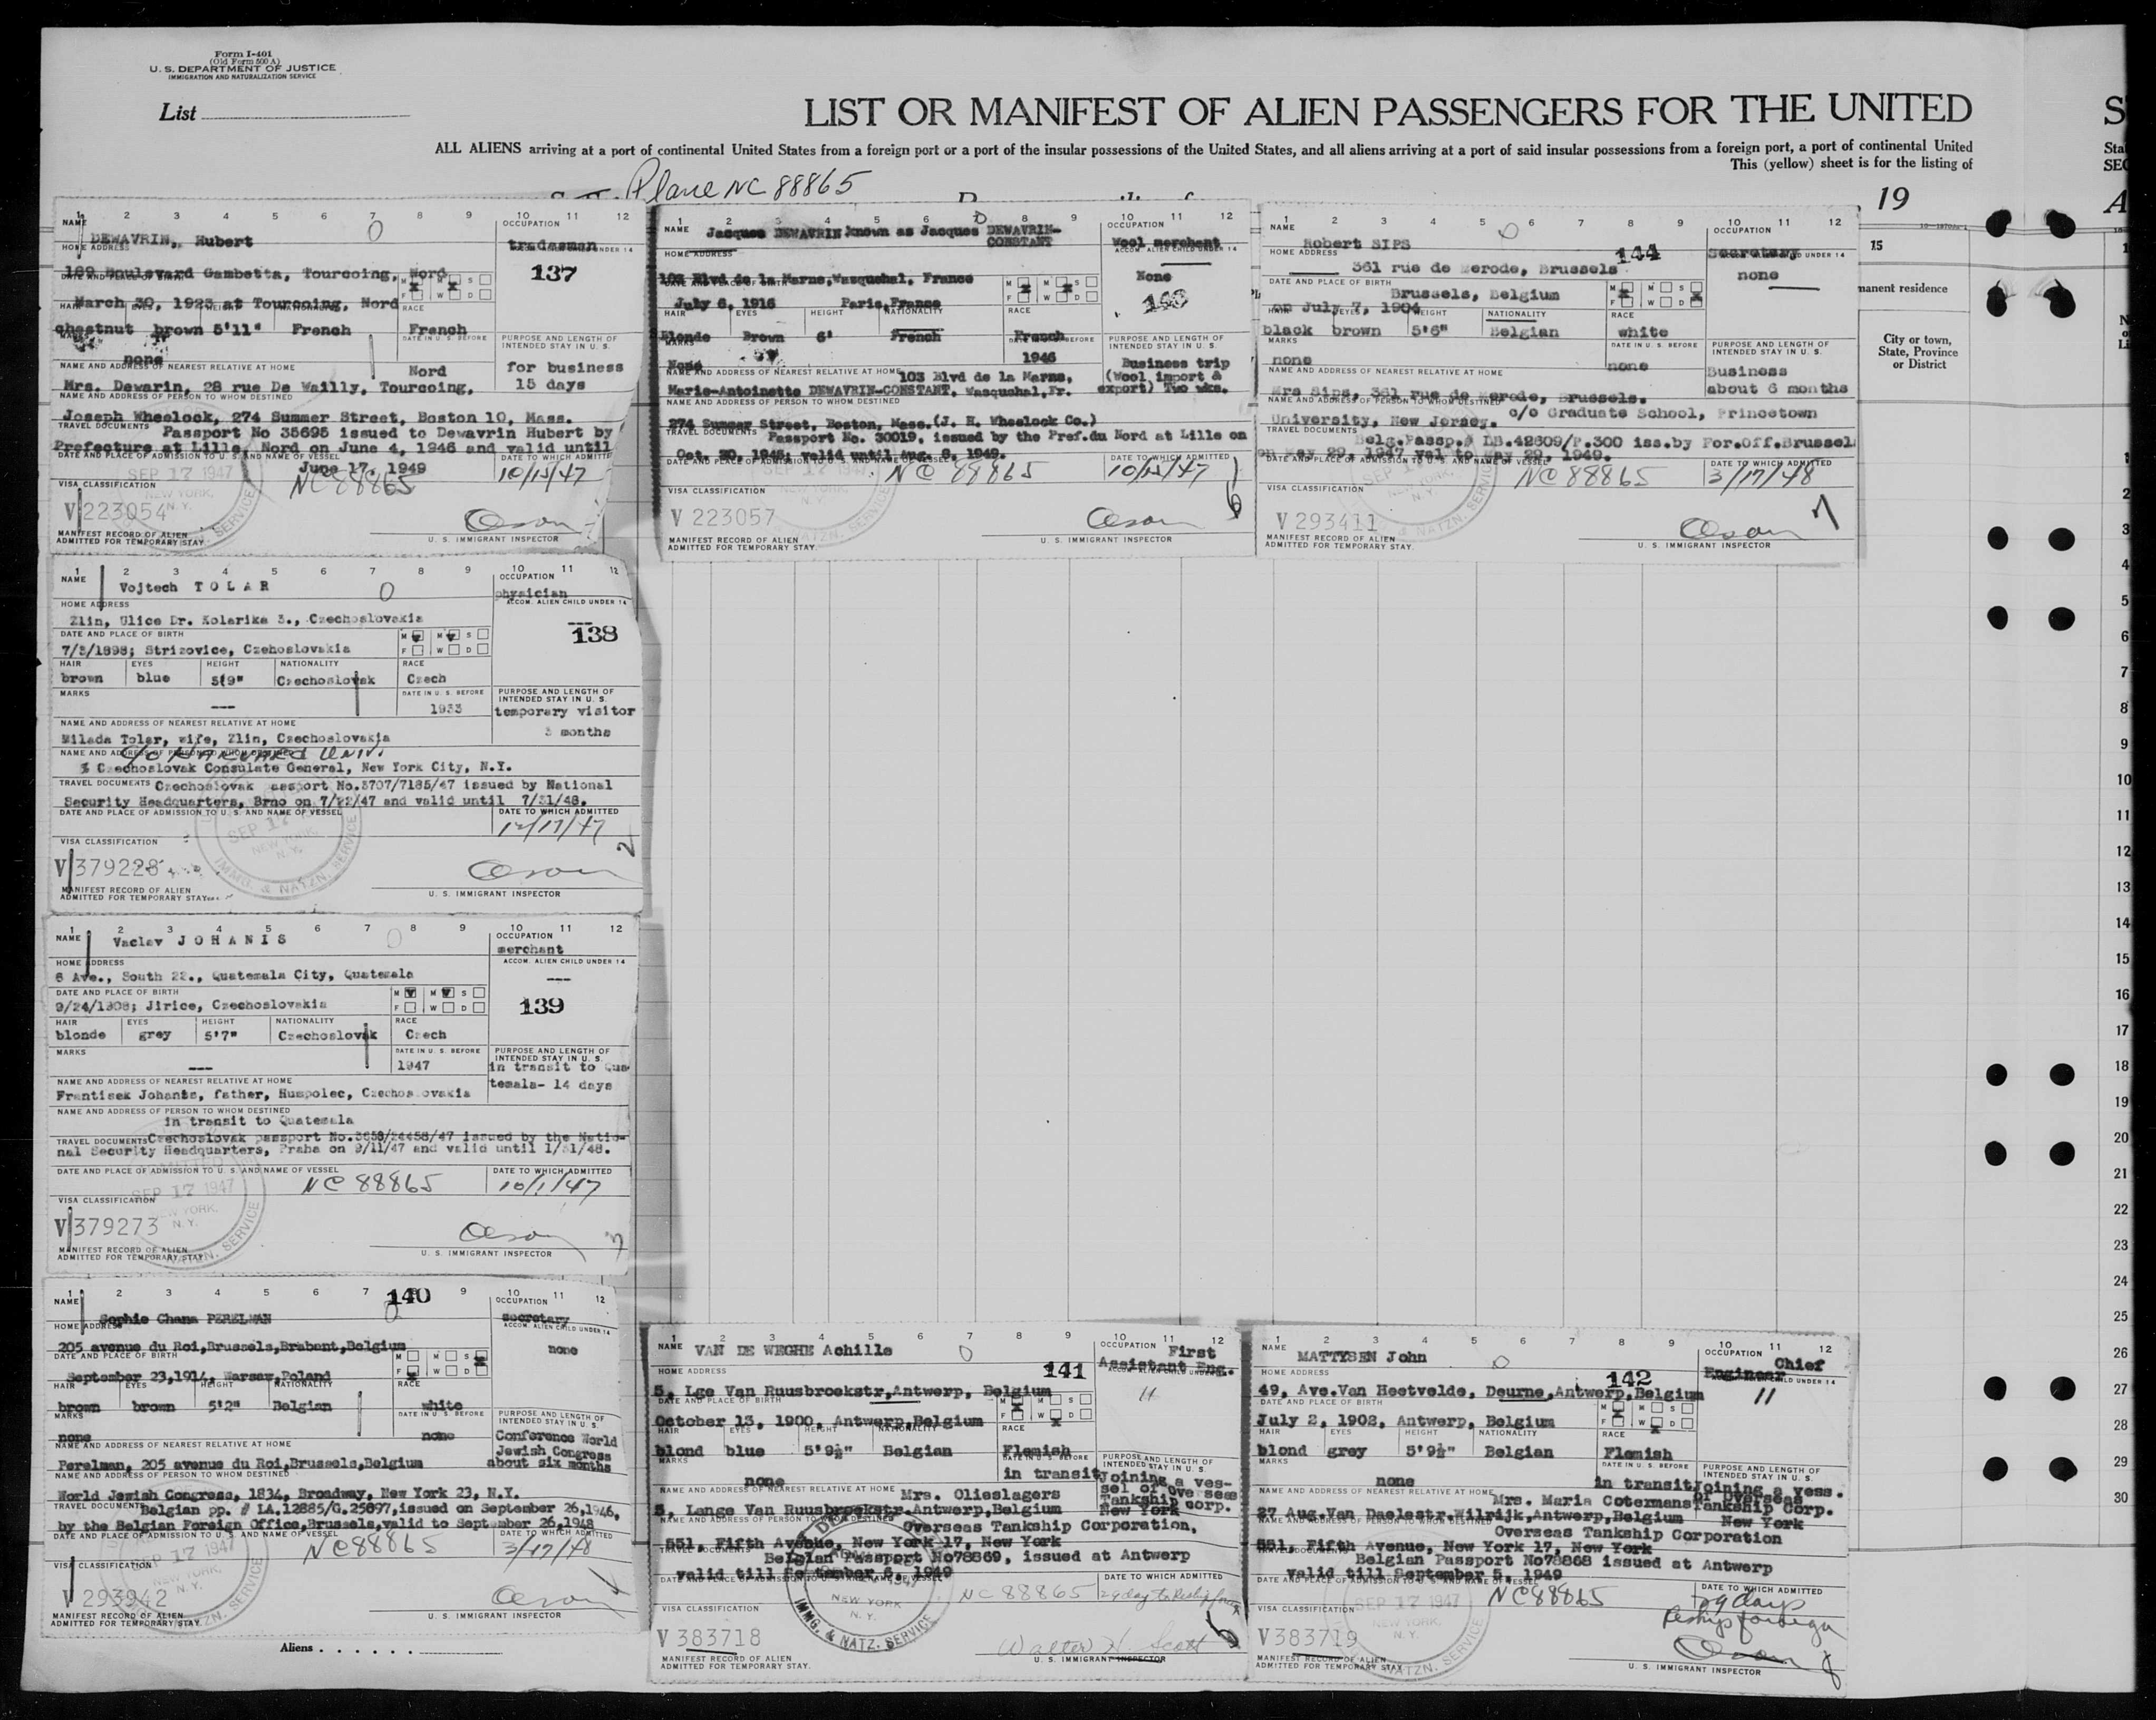 Form I-401
(Old Form 500 A)
U. S. DEPARTMENT OF JUSTICE
IMMIGRATION AND NATURALIZATION SERVICE
List
LIST OR MANIFEST OF ALIEN PASSENGERS FOR THE UNITED
ALL ALIENS arriving at a port of continental United States from a foreign port or a port of the insular possessions of the United States, and all aliens arriving at a port of said insular possessions from a foreign port, a port of continental United
This (yellow) sheet is for the listing of
Plane NC 88865
19
1 2 3 4 5 6 7 8 9 10 11 12
NAME DEWAVRIN, Hubert
OCCUPATION tradesman
HOME ADDRESS
189 Boulevard Gambetta, Tourcoing, Nord
137
DATE AND PLACE OF BIRTH
March 30, 1923 at Tourcoing, Nord
HAIR EYES HEIGHT NATIONALITY RACE
chestnut brown 5'11" French French
MARKS none
DATE IN U. S. BEFORE
PURPOSE AND LENGTH OF INTENDED STAY IN U. S.
for business
15 days
NAME AND ADDRESS OF NEAREST RELATIVE AT HOME Nord
Mrs. Dewarin, 28 rue De Wailly, Tourcoing,
NAME AND ADDRESS OF PERSON TO WHOM DESTINED
Joseph Wheelock, 274 Summer Street, Boston 10, Mass.
TRAVEL DOCUMENTS Passport No 35695 issued to Dewavrin Hubert by
Prefecture at Lille, Nord on June 4, 1946 and valid until
June 17, 1949
DATE AND PLACE OF ADMISSION TO U. S. AND NAME OF VESSEL
DATE TO WHICH ADMITTED
SEP 17 1947
NC 88865
10/15/47
VISA CLASSIFICATION
V 223054
MANIFEST RECORD OF ALIEN
ADMITTED FOR TEMPORARY STAY
U. S. IMMIGRANT INSPECTOR
1 2 3 4 5 6 7 8 9 10 11 12
NAME Jacques DEWAVRIN known as Jacques DEWAVRIN-
CONSTANT
OCCUPATION Wool merchant
ACCOM. ALIEN CHILD UNDER 14
None
HOME ADDRESS
103 Blvd de la Marne, Wasquehal, France
DATE AND PLACE OF BIRTH
July 6, 1916 Paris, France
HAIR EYES HEIGHT NATIONALITY RACE
Blonde Brown 6' French French
MARKS None
DATE IN U. S. BEFORE 1946
PURPOSE AND LENGTH OF INTENDED STAY IN U. S.
Business trip
(Wool import &
export) Two wks.
NAME AND ADDRESS OF NEAREST RELATIVE AT HOME 103 Blvd de la Marne,
Marie-Antoinette DEWAVRIN-CONSTANT, Wasquehal, Fr.
NAME AND ADDRESS OF PERSON TO WHOM DESTINED
274 Summer Street, Boston, Mass. (J. H. Wheelock Co.)
TRAVEL DOCUMENTS Passport No. 30019, issued by the Pref.du Nord at Lille on
Oct. 20, 1945; valid until Aug. 8, 1949.
DATE AND PLACE OF ADMISSION TO U. S. AND NAME OF VESSEL
DATE TO WHICH ADMITTED
NC 88865
10/15/47
VISA CLASSIFICATION
V 223057
6
MANIFEST RECORD OF ALIEN
ADMITTED FOR TEMPORARY STAY.
U. S. IMMIGRANT INSPECTOR
1 2 3 4 5 6 7 8 9 10 11 12
NAME Robert SIPS
OCCUPATION secretary
none
HOME ADDRESS
361 rue de Merode, Brussels
144
DATE AND PLACE OF BIRTH
Brussels, Belgium
on July 7, 1904
HAIR EYES HEIGHT NATIONALITY RACE
black brown 5'6" Belgian white
MARKS
none
DATE IN U. S. BEFORE none
PURPOSE AND LENGTH OF INTENDED STAY IN U. S.
Business
about 6 months
NAME AND ADDRESS OF NEAREST RELATIVE AT HOME
Mrs Sips, 361 rue de Merode, Brussels.
NAME AND ADDRESS OF PERSON TO WHOM DESTINED
c/o Graduate School, Princetown
University, New Jersey.
TRAVEL DOCUMENTS
Belg.Passp.# LB.42609/P.300 iss.by For.Off.Brussel
on May 29, 1947 val to May 29, 1949.
DATE AND PLACE OF ADMISSION TO U. S. AND NAME OF VESSEL
DATE TO WHICH ADMITTED
NC 88865
3/17/48
VISA CLASSIFICATION
V 293411
7
MANIFEST RECORD OF ALIEN
ADMITTED FOR TEMPORARY STAY.
U. S. IMMIGRANT INSPECTOR
15
manent residence
City or town,
State, Province
or District
1 2 3 4 5 6 7 8 9 10 11 12
NAME Vojtech TOLAR
OCCUPATION
physician
ACCOM. ALIEN CHILD UNDER 14
---
HOME ADDRESS
Zlin, Ulice Dr. Kolarika 3., Czechoslovakia
138
DATE AND PLACE OF BIRTH
7/3/1898; Strizovice, Czehoslovakia
HAIR EYES HEIGHT NATIONALITY RACE
brown blue 5'9" Czechoslovak Czech
MARKS ---
DATE IN U. S. BEFORE 1933
PURPOSE AND LENGTH OF INTENDED STAY IN U. S.
temporary visitor
3 months
NAME AND ADDRESS OF NEAREST RELATIVE AT HOME
Milada Tolar, wife, Zlin, Czechoslovakia
NAME AND ADDRESS OF PERSON TO WHOM DESTINED
c/o HARVARD UNIV.
% Czechoslovak Consulate General, New York City, N.Y.
TRAVEL DOCUMENTS Czechoslovak assport No.3707/7185/47 issued by National
Security Headquarters, Brno on 7/22/47 and valid until 7/31/48.
DATE AND PLACE OF ADMISSION TO U. S. AND NAME OF VESSEL
DATE TO WHICH ADMITTED
12/17/47
VISA CLASSIFICATION
V 379228
2
MANIFEST RECORD OF ALIEN
ADMITTED FOR TEMPORARY STAY
U. S. IMMIGRANT INSPECTOR
1 2 3 4 5 6 7 8 9 10 11 12
NAME Vaclav JOHANIS
OCCUPATION
merchant
ACCOM. ALIEN CHILD UNDER 14
---
HOME ADDRESS
6 Ave., South 22., Quatemala City, Quatemala
DATE AND PLACE OF BIRTH
9/24/1908; Jirice, Czechoslovakia
139
HAIR EYES HEIGHT NATIONALITY RACE
blonde grey 5'7" Czechoslovak Czech
MARKS ---
DATE IN U. S. BEFORE 1947
PURPOSE AND LENGTH OF INTENDED STAY IN U. S.
in transit to Qua-
temala- 14 days
NAME AND ADDRESS OF NEAREST RELATIVE AT HOME
Frantisek Johanis, father, Humpolec, Czechoslovakia
NAME AND ADDRESS OF PERSON TO WHOM DESTINED
in transit to Quatemala
TRAVEL DOCUMENTS Czechoslovak passport No.3658/24458/47 issued by the Natio-
nal Security Headquarters, Praha on 9/11/47 and valid until 1/31/48.
DATE AND PLACE OF ADMISSION TO U. S. AND NAME OF VESSEL
DATE TO WHICH ADMITTED
SEP 17 1947
NC 88865
10/1/47
VISA CLASSIFICATION
V 379273
3
MANIFEST RECORD OF ALIEN
ADMITTED FOR TEMPORARY STAY
U. S. IMMIGRANT INSPECTOR
1 2 3 4 5 6 7 9 10 11 12
140
NAME Sophie Chana PERELMAN
OCCUPATION
secretary
ACCOM. ALIEN CHILD UNDER 14
none
HOME ADDRESS
205 avenue du Roi,Brussels,Brabant,Belgium
DATE AND PLACE OF BIRTH
September 23,1914, Warsaw,Poland
HAIR EYES HEIGHT NATIONALITY RACE
brown brown 5'2" Belgian white
MARKS
none
DATE IN U. S. BEFORE
none
PURPOSE AND LENGTH OF INTENDED STAY IN U. S.
Conference World
Jewish Congress
about six months
NAME AND ADDRESS OF NEAREST RELATIVE AT HOME
Perelman, 205 avenue du Roi,Brussels,Belgium
NAME AND ADDRESS OF PERSON TO WHOM DESTINED
World Jewish Congress, 1834, Broadway, New York 23, N.Y.
TRAVEL DOCUMENTS Belgian pp. # LA.12885/G.25897,issued on September 26,1946,
by the Belgian Foreign Office,Brussels,valid to September 26,1948
DATE AND PLACE OF ADMISSION TO U. S. AND NAME OF VESSEL
DATE TO WHICH ADMITTED
SEP 17 1947
NC 88865
3/17/48
VISA CLASSIFICATION
V 293942
MANIFEST RECORD OF ALIEN
ADMITTED FOR TEMPORARY STAY
U. S. IMMIGRANT INSPECTOR
Aliens
1 2 3 4 5 6 7 8 9 10 11 12
NAME VAN DE WEGHE Achille
OCCUPATION First
Assistant Eng.
141
HOME ADDRESS
5, Lge Van Ruusbroekstr,Antwerp, Belgium
DATE AND PLACE OF BIRTH
October 13, 1900, Antwerp,Belgium
HAIR EYES HEIGHT NATIONALITY RACE
blond blue 5'9½" Belgian Flemish
MARKS none
DATE IN U. S. BEFORE
in transit
PURPOSE AND LENGTH OF INTENDED STAY IN U. S.
Joining a ves-
sel of overseas
Tankship Corp.
New York
NAME AND ADDRESS OF NEAREST RELATIVE AT HOME Mrs. Olieslagers
5, Lange Van Ruusbroekstr.Antwerp,Belgium
NAME AND ADDRESS OF PERSON TO WHOM DESTINED
Overseas Tankship Corporation,
551, Fifth Avenue, New York 17, New York
TRAVEL DOCUMENTS
Belgian Passport No78869, issued at Antwerp
valid till September 5, 1949
DATE AND PLACE OF ADMISSION TO U. S. AND NAME OF VESSEL
DATE TO WHICH ADMITTED
NC 88865
NEW YORK
N. Y.
IMMG. & NATZ. SERVICE
VISA CLASSIFICATION
V 383718
Walter H. Scott
MANIFEST RECORD OF ALIEN
ADMITTED FOR TEMPORARY STAY.
U. S. IMMIGRANT INSPECTOR
1 2 3 4 5 6 7 8 9 10 11 12
NAME MATTYSEN John
OCCUPATION Chief
Engineer
142
HOME ADDRESS
49, Ave.Van Heetvelde, Deurne,Antwerp,Belgium
DATE AND PLACE OF BIRTH
July 2, 1902, Antwerp, Belgium
HAIR EYES HEIGHT NATIONALITY RACE
blond grey 5'9½" Belgian Flemish
MARKS none
DATE IN U. S. BEFORE
in transit
PURPOSE AND LENGTH OF INTENDED STAY IN U. S.
Joining a vess.
of Overseas
Tankship Corp.
New York
NAME AND ADDRESS OF NEAREST RELATIVE AT HOME
Mrs. Maria Cotermans
27 Aug.Van Daelestr.Wilrijk,Antwerp,Belgium
NAME AND ADDRESS OF PERSON TO WHOM DESTINED
Overseas Tankship Corporation
551, Fifth Avenue, New York 17, New York
TRAVEL DOCUMENTS
Belgian Passport No78868 issued at Antwerp
valid till September 5, 1949
DATE AND PLACE OF ADMISSION TO U. S. AND NAME OF VESSEL
DATE TO WHICH ADMITTED
SEP 17 1947
NC 88865
29 days
Reship foreign
VISA CLASSIFICATION
V 383719
8
MANIFEST RECORD OF ALIEN
ADMITTED FOR TEMPORARY STAY
U. S. IMMIGRANT INSPECTOR
S
Sta
SEC
A
1
2
3
4
5
6
7
8
9
10
11
12
13
14
15
16
17
18
19
20
21
22
23
24
25
26
27
28
29
30